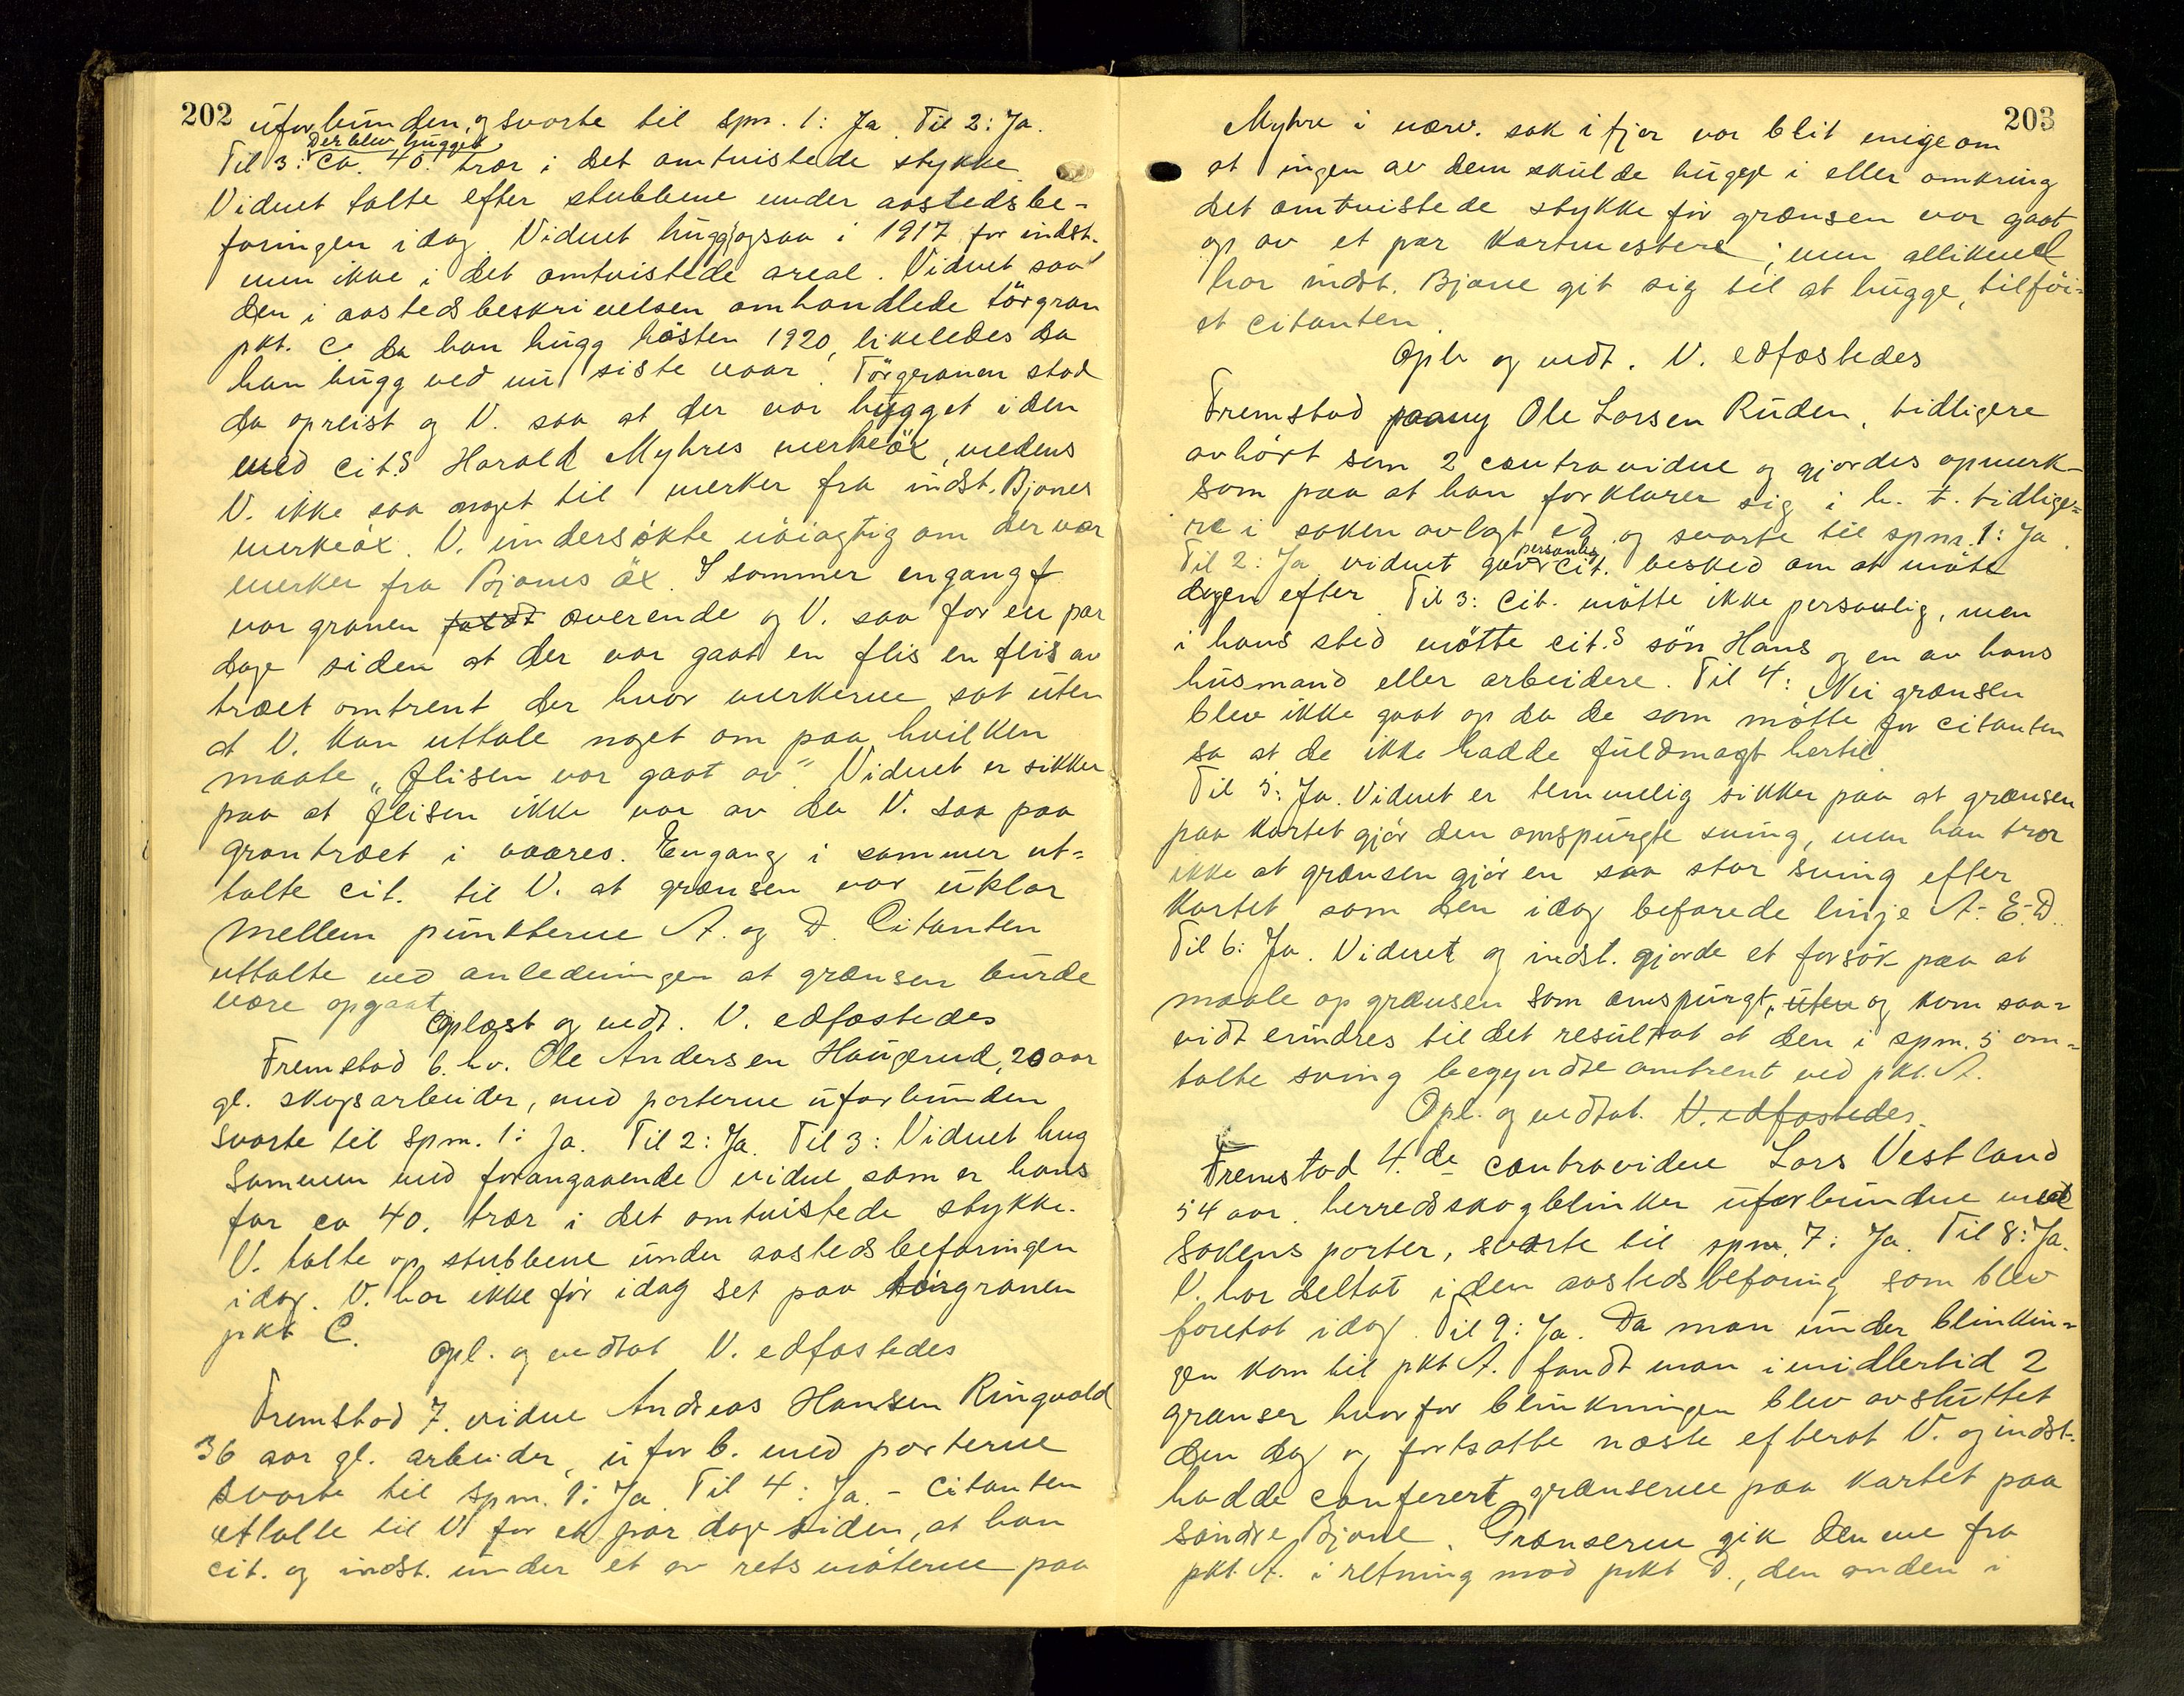 202
uforbunden, og svarte til spm. 1: Ja. Til 2: Ja.
Der blev hugget
Til 3: ca. 40. trær i det omtvistede stykke
Vidnet talte efter stubbene under aastedsbe-
faringen idag. Vidnet hugg ogsaa i 1917 for indst.
men ikke i det omtvistede areal. Vidnet saa
den i aastedsbeskrivelsen omhandlede törgran
pkt. C da han hugg høsten 1920, likeledes da
han hugg ved nu siste vaar. Törgranen stod
da opreist og V. saa at der var hugget i den
med cit.s Harald Myhres merkeöx, medens
V. ikke saa noget til merker fra indst. Bjønes
merkeöx. V. undersøkte nöiagtig om der var
merker fra Bjønes öx. I sommer engang
var granen faldt overende og V. saa for en par
dage siden at der var gaat en flis en flis av
træet omtrent der hvor merkerne sat uten
at V. kan uttale noget om paa hvilken
maate "flisen var gaat av". Vidnet er sikker
paa at flisen ikke var av da V. saa paa
grantræet i vaares. Engang i sommer ut-
talte cit. til V. at grænsen var uklar
mellem punkterne A. og D. Citanten
uttalte ved anledningen at grænsen burde
være opgaat
Oplæst og vedt. V. edfæstedes
Fremstod 6. hv. Ole Andersen Haugerud, 20 aar
gl. skogsarbeider, med parterne uforbunden
svarte til spm. 1: Ja. Til 2: Ja. Til 3: Vidnet hug
sammen med forangaaende vidne som er hans
far ca 40. trær i det omtvistede stykke.
V. talte op stubbene under aastedsbefaringen
idag. V. har ikke før idag set paa törgranen
pkt C.
Opl. og vedtat V. edfæstedes
Fremstod 7. vidne Andreas Hansen Ringvold
36 aar gl. arbeider, uforb. med parterne
svarte til spm. 1: Ja Til 4: Ja. - Citanten
uttalte til V for et par dage siden, at han
cit. og indst. under et av retsmøterne paa
203
Myhre i nærv. sak i fjor var blit enige om
at ingen av dem skulde hugge i eller omkring
det omtvistede stykke før grænsen var gaat
op av et par kartmestere; men allikevel
har indst. Bjøne git sig til at hugge, tilföi-
et citanten.
Opl. og vedt. V. edfæstedes
Fremstod paany Ole Larsen Ruden, tidligere
avhört som 2 contravidne og gjordes opmerk-
som paa at han forklarer sig i h. t. tidlige-
re i saken avlagt ed og svarte til spm. 1: Ja.
personlig
Til 2: Ja vidnet gav cit. besked om at møte
dagen efter. Til 3: Cit. mötte ikke personlig, men
i hans sted mötte cit.s sön Hans og en av hans
husmænd eller arbeidere. Til 4: Nei grænsen
blev ikke gaat op da de som mötte for citanten
sa at de ikke hadde fuldmagt hertil
Til 5: Ja. Vidnet er temmelig sikker paa at grænsen
paa kartet gjör den omspurgte sving, men han tror
ikke at grænsen gjör en saa stor sving efter
kartet som den idag befarede linje A-E-D.
Til 6: Ja. Vidnet og indst. gjorde et forsök paa at
maale op grænsen som omspurgt, uten og kom saa-
vidt erindres til det resultat at den i spm. 5 om-
talte sving begyndte omtrent ved pkt. A.
Opl. og vedtat. V. edfæstedes.
Fremstod 4.de contravidne Lars Vestland
54 aar. herredsskogblinker uforbunden med
sakens parter, svarte til spm. 7: Ja. Til 8: Ja.
V. har deltat i den aastedsbefaring som blev
foretat idag. Til 9: Ja. Da man under blinkin-
gen kom til pkt A. fandt man imidlertid 2
grænser hvorfor blinkningen blev avsluttet
den dag og fortsatte næste efterat V. og indst.
hadde conferert grænserne paa kartet paa
söndre Bjøne. Grænserne gik den ene fra
pkt. A. i retning mod pkt D., den anden i